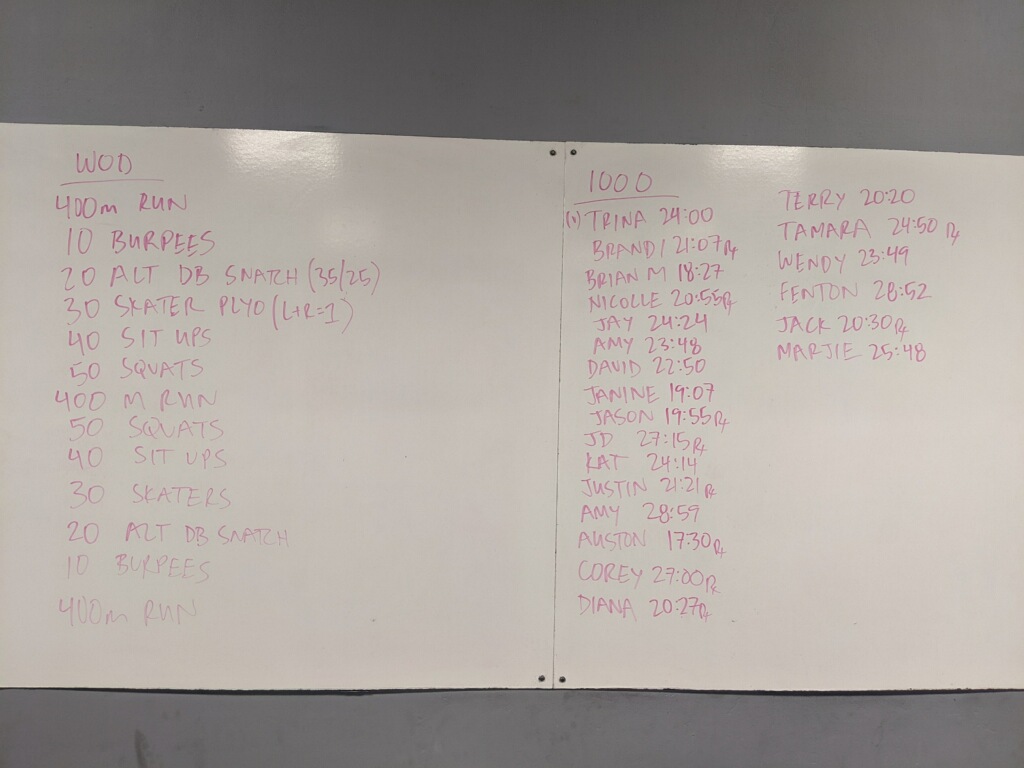 WOD
400m RUN
10 BURPEES
20 ALT DB SNATCH (35/25)
30 SKATER PLYO (L+R=1)
40 SIT UPS
50 SQUATS
400 M RUN
50 SQUATS
40 SIT UPS
30 SKATERS
20 ALT DB SNATCH
10 BURPEES
400m RUN
1000
(v) TRINA 24:00
BRANDI 21:07 Rx
BRIAN M 18:27
NICOLLE 20:55 Rx
JAY 24:24
AMY 23:48
DAVID 22:50
JANINE 19:07
JASON 19:55 Rx
JD 27:15 Rx
KAT 24:14
JUSTIN 21:21 Rx
AMY 28:59
AUSTON 17:30 Rx
COREY 27:00 Rx
DIANA 20:27 Rx
TERRY 20:20
TAMARA 24:50 Rx
WENDY 23:49
FENTON 28:52
JACK 20:30 Rx
MARJIE 25:48